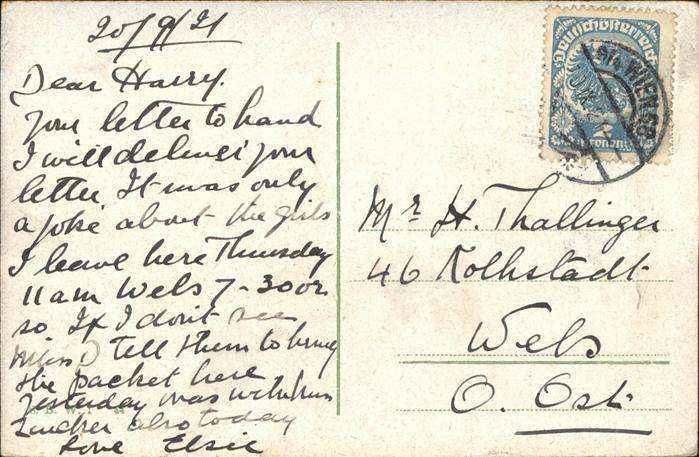 20/9/21
Dear Harry.
your letter to hand
I will deliver your
letter. It was only
a joke about the girls
I leave here Thursday
11am Wels 7-30 or
so If I don't see
Miss O tell them to bring
the packet here
Yesterday was with him
Zucker also today
Love Elsie
Deutschösterreich
2
Kronen
WIEN
Mr H. Thallinger
46 Kolhstadt
Wels
O. Ost